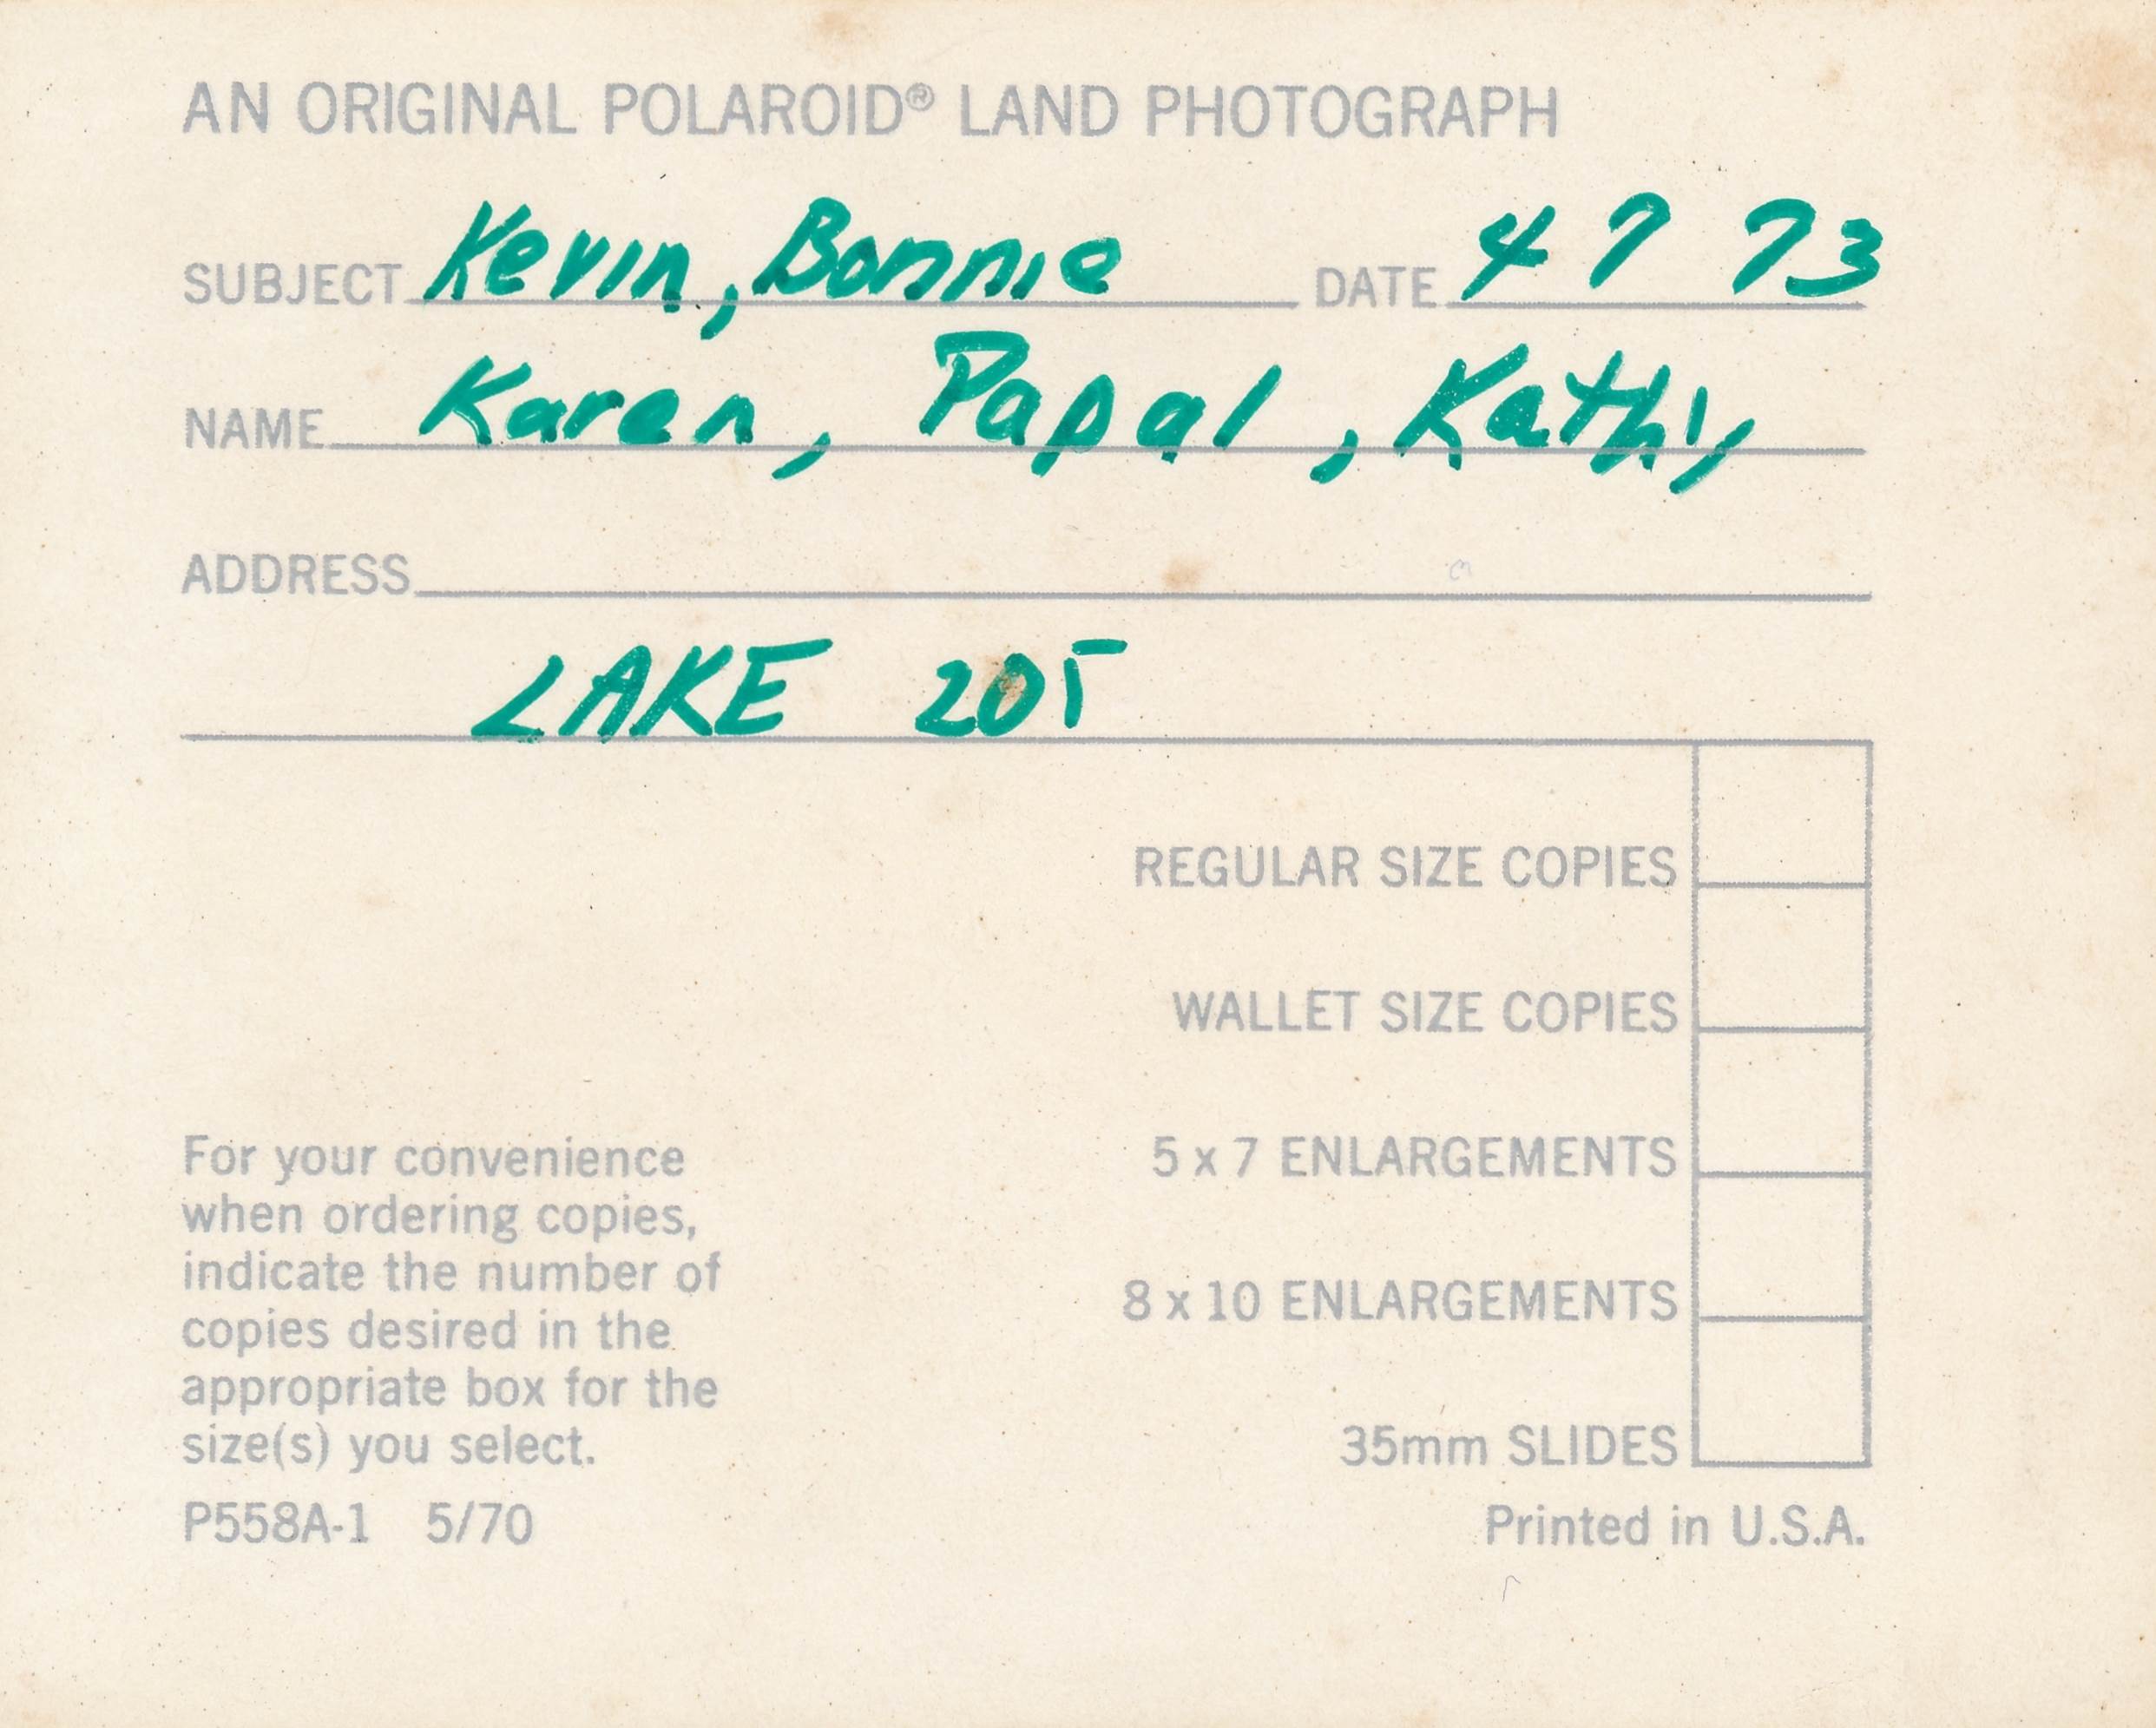 AN ORIGINAL POLAROID® LAND PHOTOGRAPH
SUBJECT Kevin, Bonnie DATE 4 7 73
NAME Karen, Papal, Kathy
ADDRESS
LAKE 205
REGULAR SIZE COPIES
WALLET SIZE COPIES
5 x 7 ENLARGEMENTS
8 x 10 ENLARGEMENTS
35mm SLIDES
For your convenience
when ordering copies,
indicate the number of
copies desired in the
appropriate box for the
size(s) you select.
P558A-1 5/70
Printed in U.S.A.